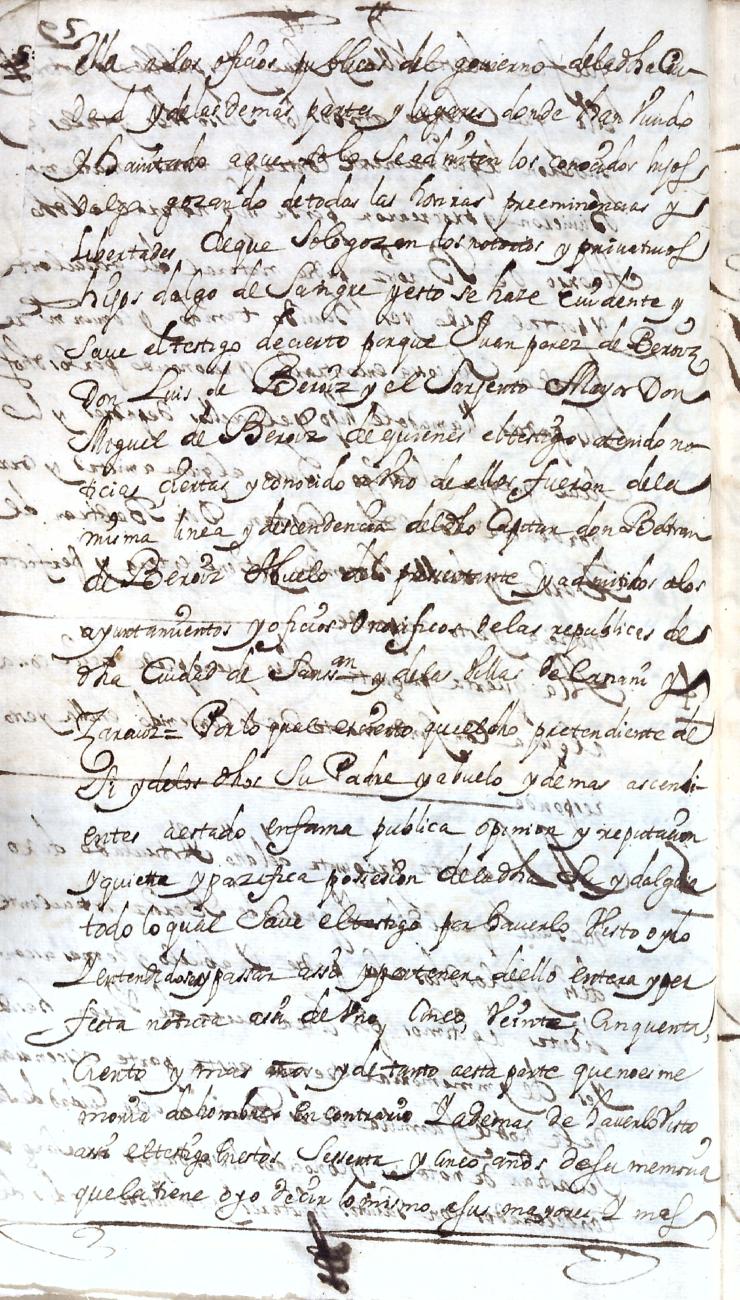 95
ella a los oficios publicos del govierno de la dha Ciu
dad y de las demas partes y lugares donde han vivido
y havitado a que solo se admiten los conocidos hijos
dalgo gozando de todas las honras preeminencias y
libertades de que solo gozan los notorios y privativos
hijos dalgo de Sangre y esto se haze evidente y
save el testigo de cierto porque Juan perez de Beroiz
Don Luis de Beroiz y el Sarjento Mayor Don
Miguel de Beroiz de quienes el testigo a tenido no
ticias ciertas y conocido a Uno de ellos fueron de la
misma linea y descendencia del dho Capitan don Beltran
de Beroiz Abuelo del presentante y admitidos a los
ayuntamientos y oficios onorificos de las republicas de
dha Ciudad de Sanssan y de las Villas de Canani y
Zarauz = Por lo qual es cierto que el dho pretendiente de
Si y de los dhos Su Padre y abuelo y demas ascendi
entes a estado en fama publica opinion y reputacion
y quieta y pazifica posesion de la dha Su ydalguia
todo lo qual Save el testigo por haverlo Visto oydo
y entendido y passar assi y por tener de ello entera y per
fecta noticia assi de Uno, Cinco, Veinte, Cinquenta,
Ciento y mas años y de tanto a esta parte que no es me
moria de hombres en contrario Y ademas de haverlo Visto
assi el testigo en estos Sessenta y Cinco años de su memoria
que la tiene oyo decir lo mismo a sus mayores Y mas